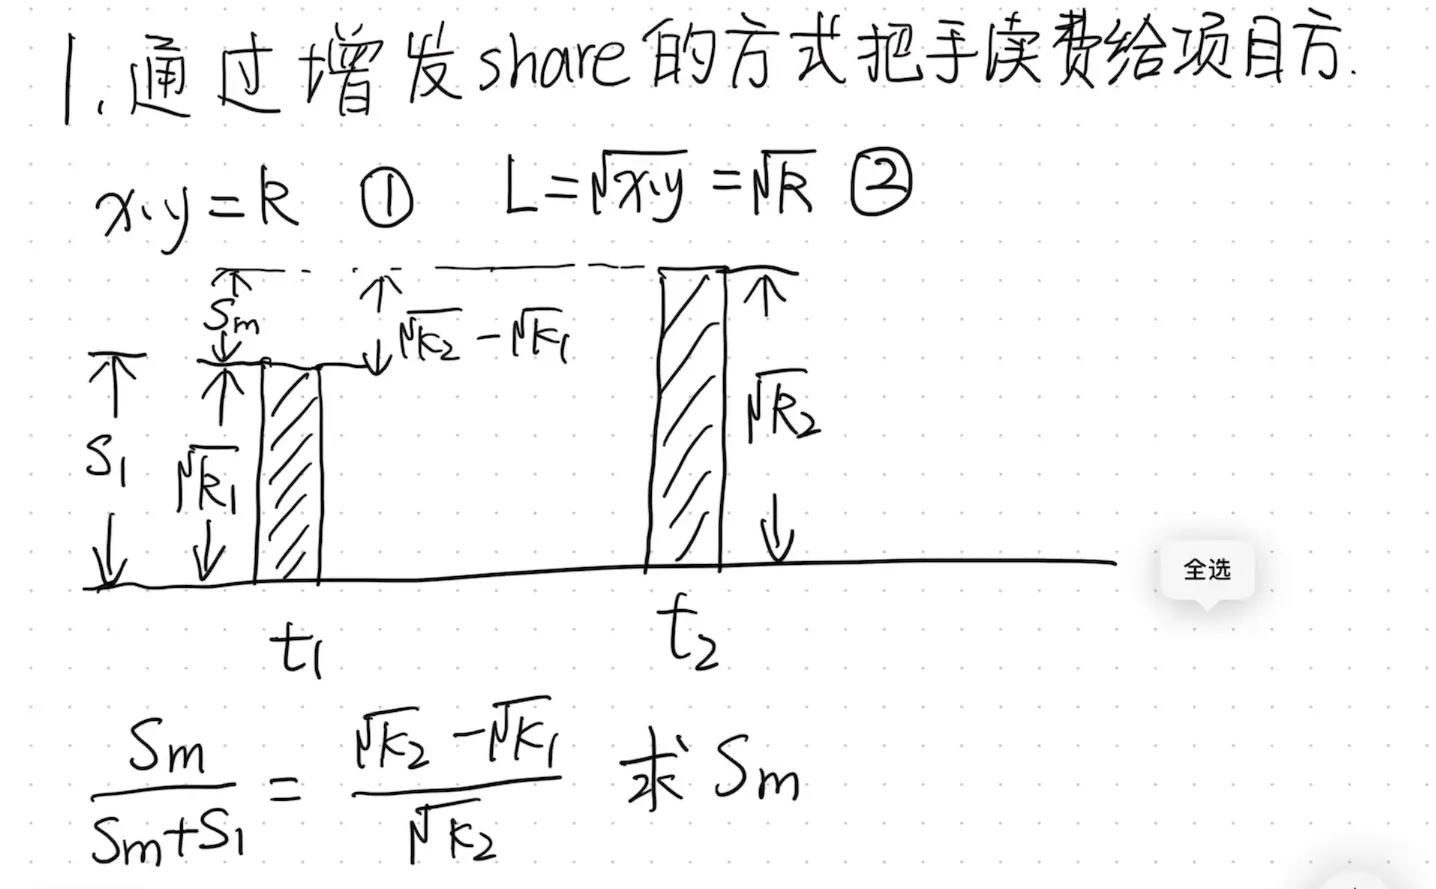 1.通过增发share的方式把手续费给项目方.
x·y=k ① L=√x·y=√k ②
Sm
√k2-√k1
S1
√k1
√k2
全选
t1
t2
Sm/(Sm+S1)=(√k2-√k1)/√k2 求Sm